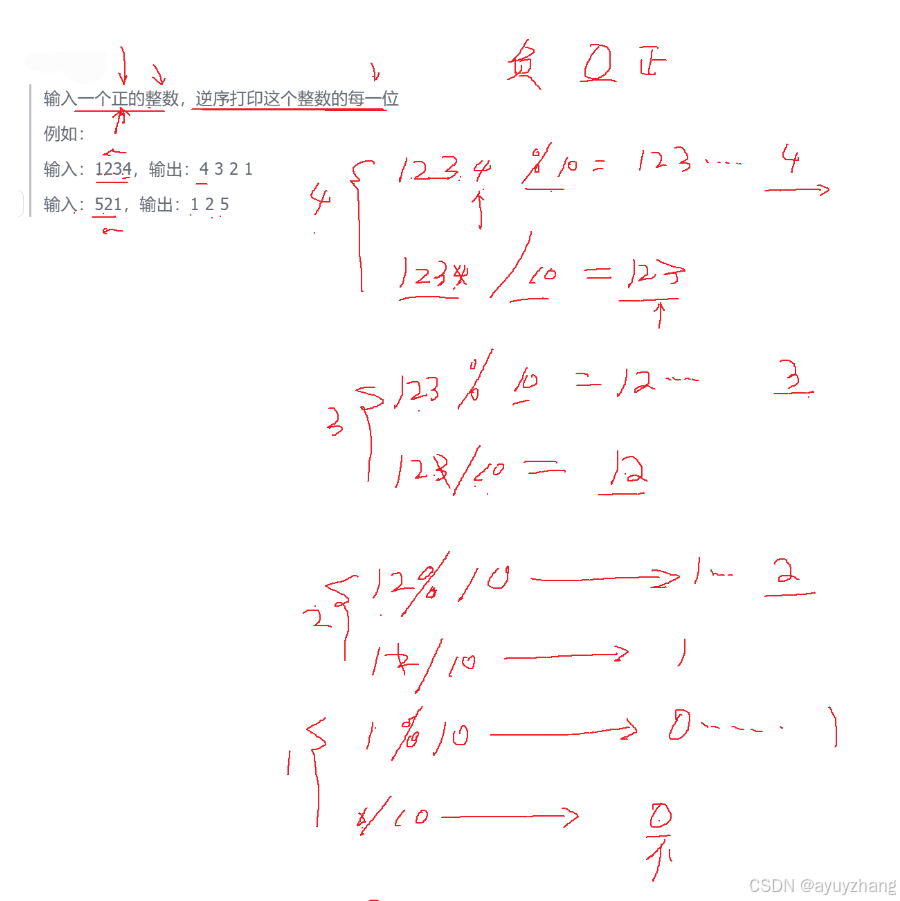 负 0 正
输入一个正的整数，逆序打印这个整数的每一位
例如：
输入：1234，输出：4 3 2 1
输入：521，输出：1 2 5
4
1234 % 10 = 123 .... 4
1234 / 10 = 123
3
123 % 10 = 12 .... 3
123 / 10 = 12
2
12 % 10 → 1 ... 2
12 / 10 → 1
1
1 % 10 → 0 ...... 1
1 / 10 → 0
CSDN @ayuyzhang